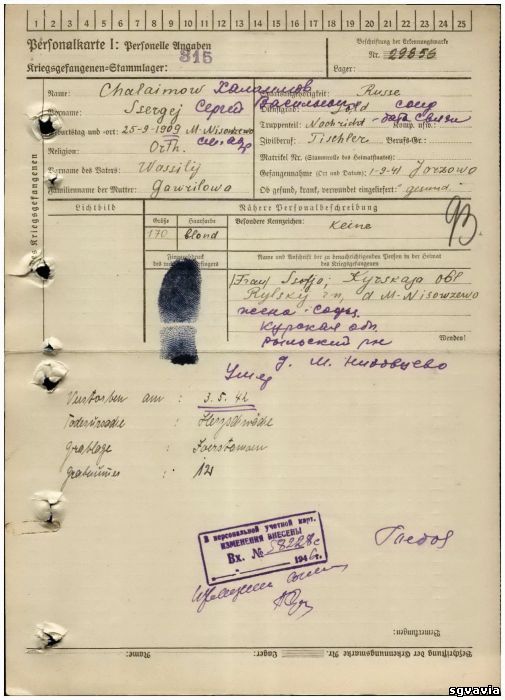 1 2 3 4 5 6 7 8 9 10 11 12 13 14 15 16 17 18 19 20 21 22 23 24 25
Personalkarte I: Personelle Angaben
315
Kriegsgefangenen-Stammlager:
Beschriftung der Erkennungsmarke
Nr. 29856
Lager:
Des Kriegsgefangenen
Name: Chalaimow Халаимов
Vorname: Ssergej Сергей Васильевич
Geburtstag und -ort: 25-9-1909 M-Nisowzewo
Religion: Orth.
Vorname des Vaters: Wassilij
Familienname der Mutter: Gawrilowa
Staatsangehörigkeit: Russe
Dienstgrad: Sold солд
Truppenteil: Nachricht- Komp. usw.: бат. Связи
Zivilberuf: Tischler Berufs-Gr.:
Matrikel Nr. (Stammrolle des Heimatstaates):
Gefangennahme (Ort und Datum): 1-9-41
Ob gesund, krank, verwundet eingeliefert: gesund
Lichtbild
Nähere Personalbeschreibung
Größe
Haarfarbe
Besondere Kennzeichen:
170
blond
Keine
Fingerabdruck
Name und Anschrift der zu benachrichtigenden Person in der Heimat
des Kriegsgefangenen
Frau
Rylskij d M-Nisowzewo
жена
Курская обл.
Рыльский рн
Wenden!
д. М. Низовцево
Умер
Verstorben am : 3.5.42
Todesursache : Herzschwäche
Grablage :
Grabnummer : 121
В персональной учетной карт.
ИЗМЕНЕНИЯ ВНЕСЕНЫ
Вх. №
194 6 г.
Bemerkungen:
Name:
Lager:
Beschriftung der Erkennungsmarke Nr.
sgvavia